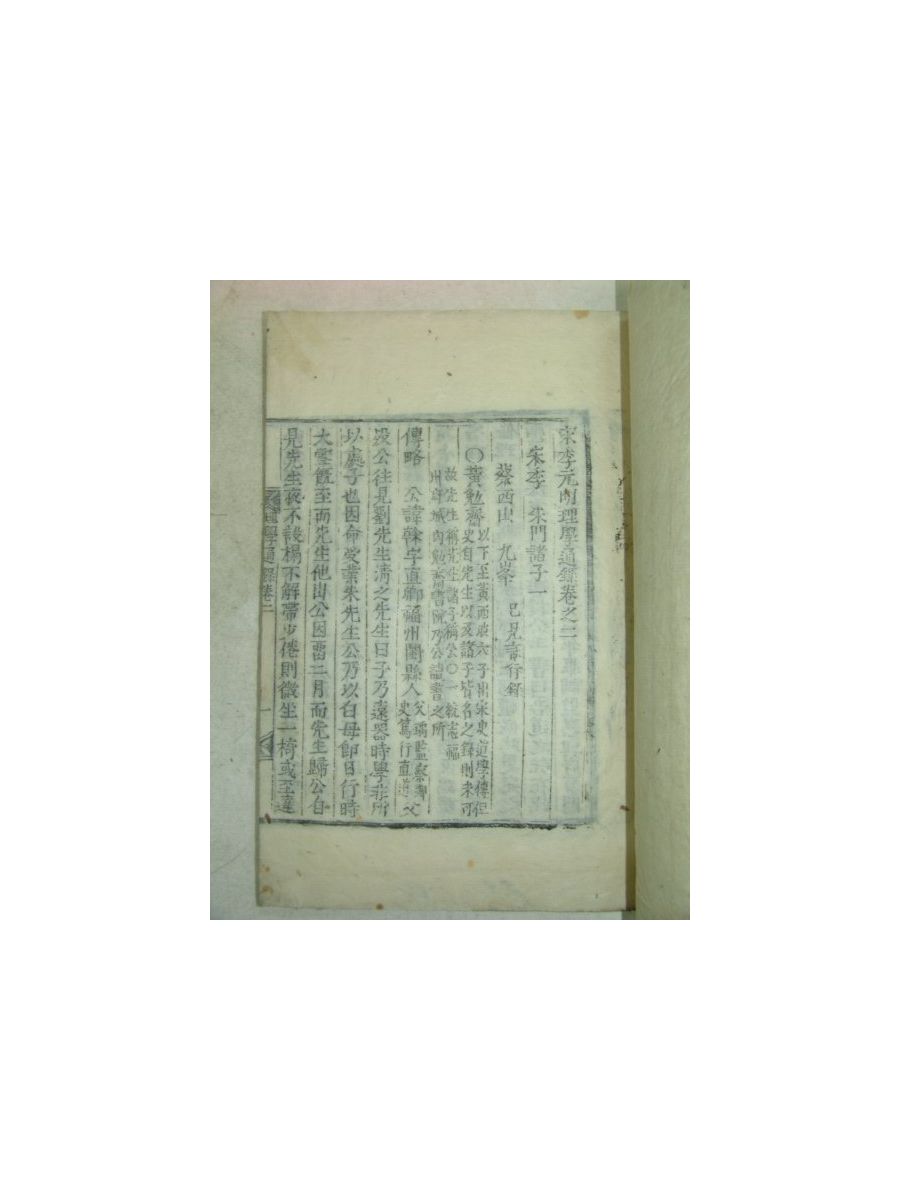 宋季元明理學通錄卷之二
宋季 朱門諸子一
蔡西山 九峯 已見言行錄
〇黃勉齋
以下至黃西坡六子出宋史道學傳但
史自先生以及諸子皆名之錄則未可
故先生稱先生諸子稱公〇一統志福
州府城內勉齋書院乃公讀書之所
傳略 公諱榦字直卿福州閩縣人
父瑀監察御
史篤行直道
父
沒公往見劉先生淸之先生曰子乃遠器時學非所
以處子也因命受業朱先生公乃以白母卽日行時
大雪旣至而先生他出公因留二月而先生歸公自
見先生夜不設榻不解帶少倦則微坐一椅或至達
理學通錄卷二
一